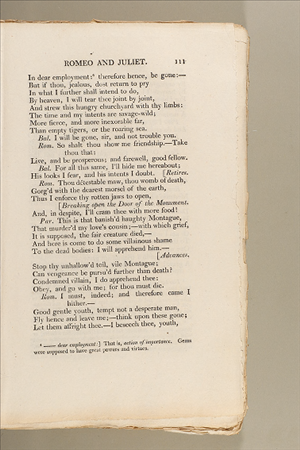 ROMEO AND JULIET. 111
In dear employment:⁸ therefore hence, be gone:—
But if thou, jealous, dost return to pry
In what I further shall intend to do,
By heaven, I will tear thee joint by joint,
And strew this hungry churchyard with thy limbs:
The time and my intents are savage-wild;
More fierce, and more inexorable far,
Than empty tigers, or the roaring sea.
Bal. I will be gone, sir, and not trouble you.
Rom. So shalt thou show me friendship.—Take
thou that:
Live, and be prosperous; and farewell, good fellow.
Bal. For all this same, I'll hide me hereabout;
His looks I fear, and his intents I doubt. [Retires.
Rom. Thou détestable maw, thou womb of death,
Gorg'd with the dearest morsel of the earth,
Thus I enforce thy rotten jaws to open,
[Breaking open the Door of the Monument.
And, in despite, I'll cram thee with more food!
Par. This is that banish'd haughty Montague,
That murder'd my love's cousin;—with which grief,
It is supposed, the fair creature died,—
And here is come to do some villainous shame
To the dead bodies: I will apprehend him.—
[Advances.
Stop thy unhallow'd toil, vile Montague;
Can vengeance be pursu'd further than death?
Condemned villain, I do apprehend thee:
Obey, and go with me; for thou must die.
Rom. I must, indeed; and therefore came I
hither.—
Good gentle youth, tempt not a desperate man,
Fly hence and leave me;—think upon these gone;
Let them affright thee.—I beseech thee, youth,
⁸ —— dear employment:] That is, action of importance. Gems
were supposed to have great powers and virtues.